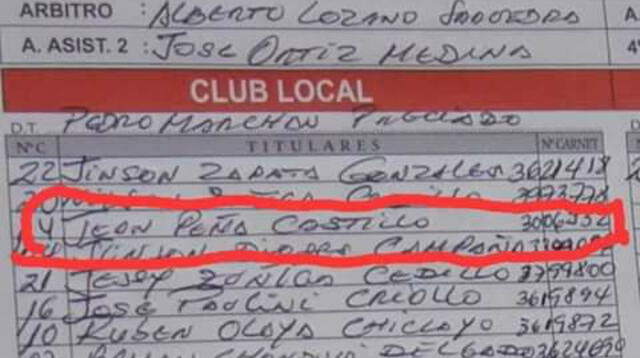 ARBITRO : ALBERTO LOZANO SAAVEDRA A
A. ASIST. 2 : JOSE ORTIZ MEDINA 4
CLUB LOCAL
D.T. PEDRO MARCHAN PRECIADO
N°C TITULARES N° CARNET
22 JINSON ZAPATA GONZALES 3621418
4 LEON PEÑA COSTILLO 3006532
CAMPAÑA
21 JESSY ZUÑIGA CEDILLO 3799800
16 JOSE PAULINI CRIOLLO 3619894
10 RUBEN OLAYA CHICLAYO 3619872
DELGADO